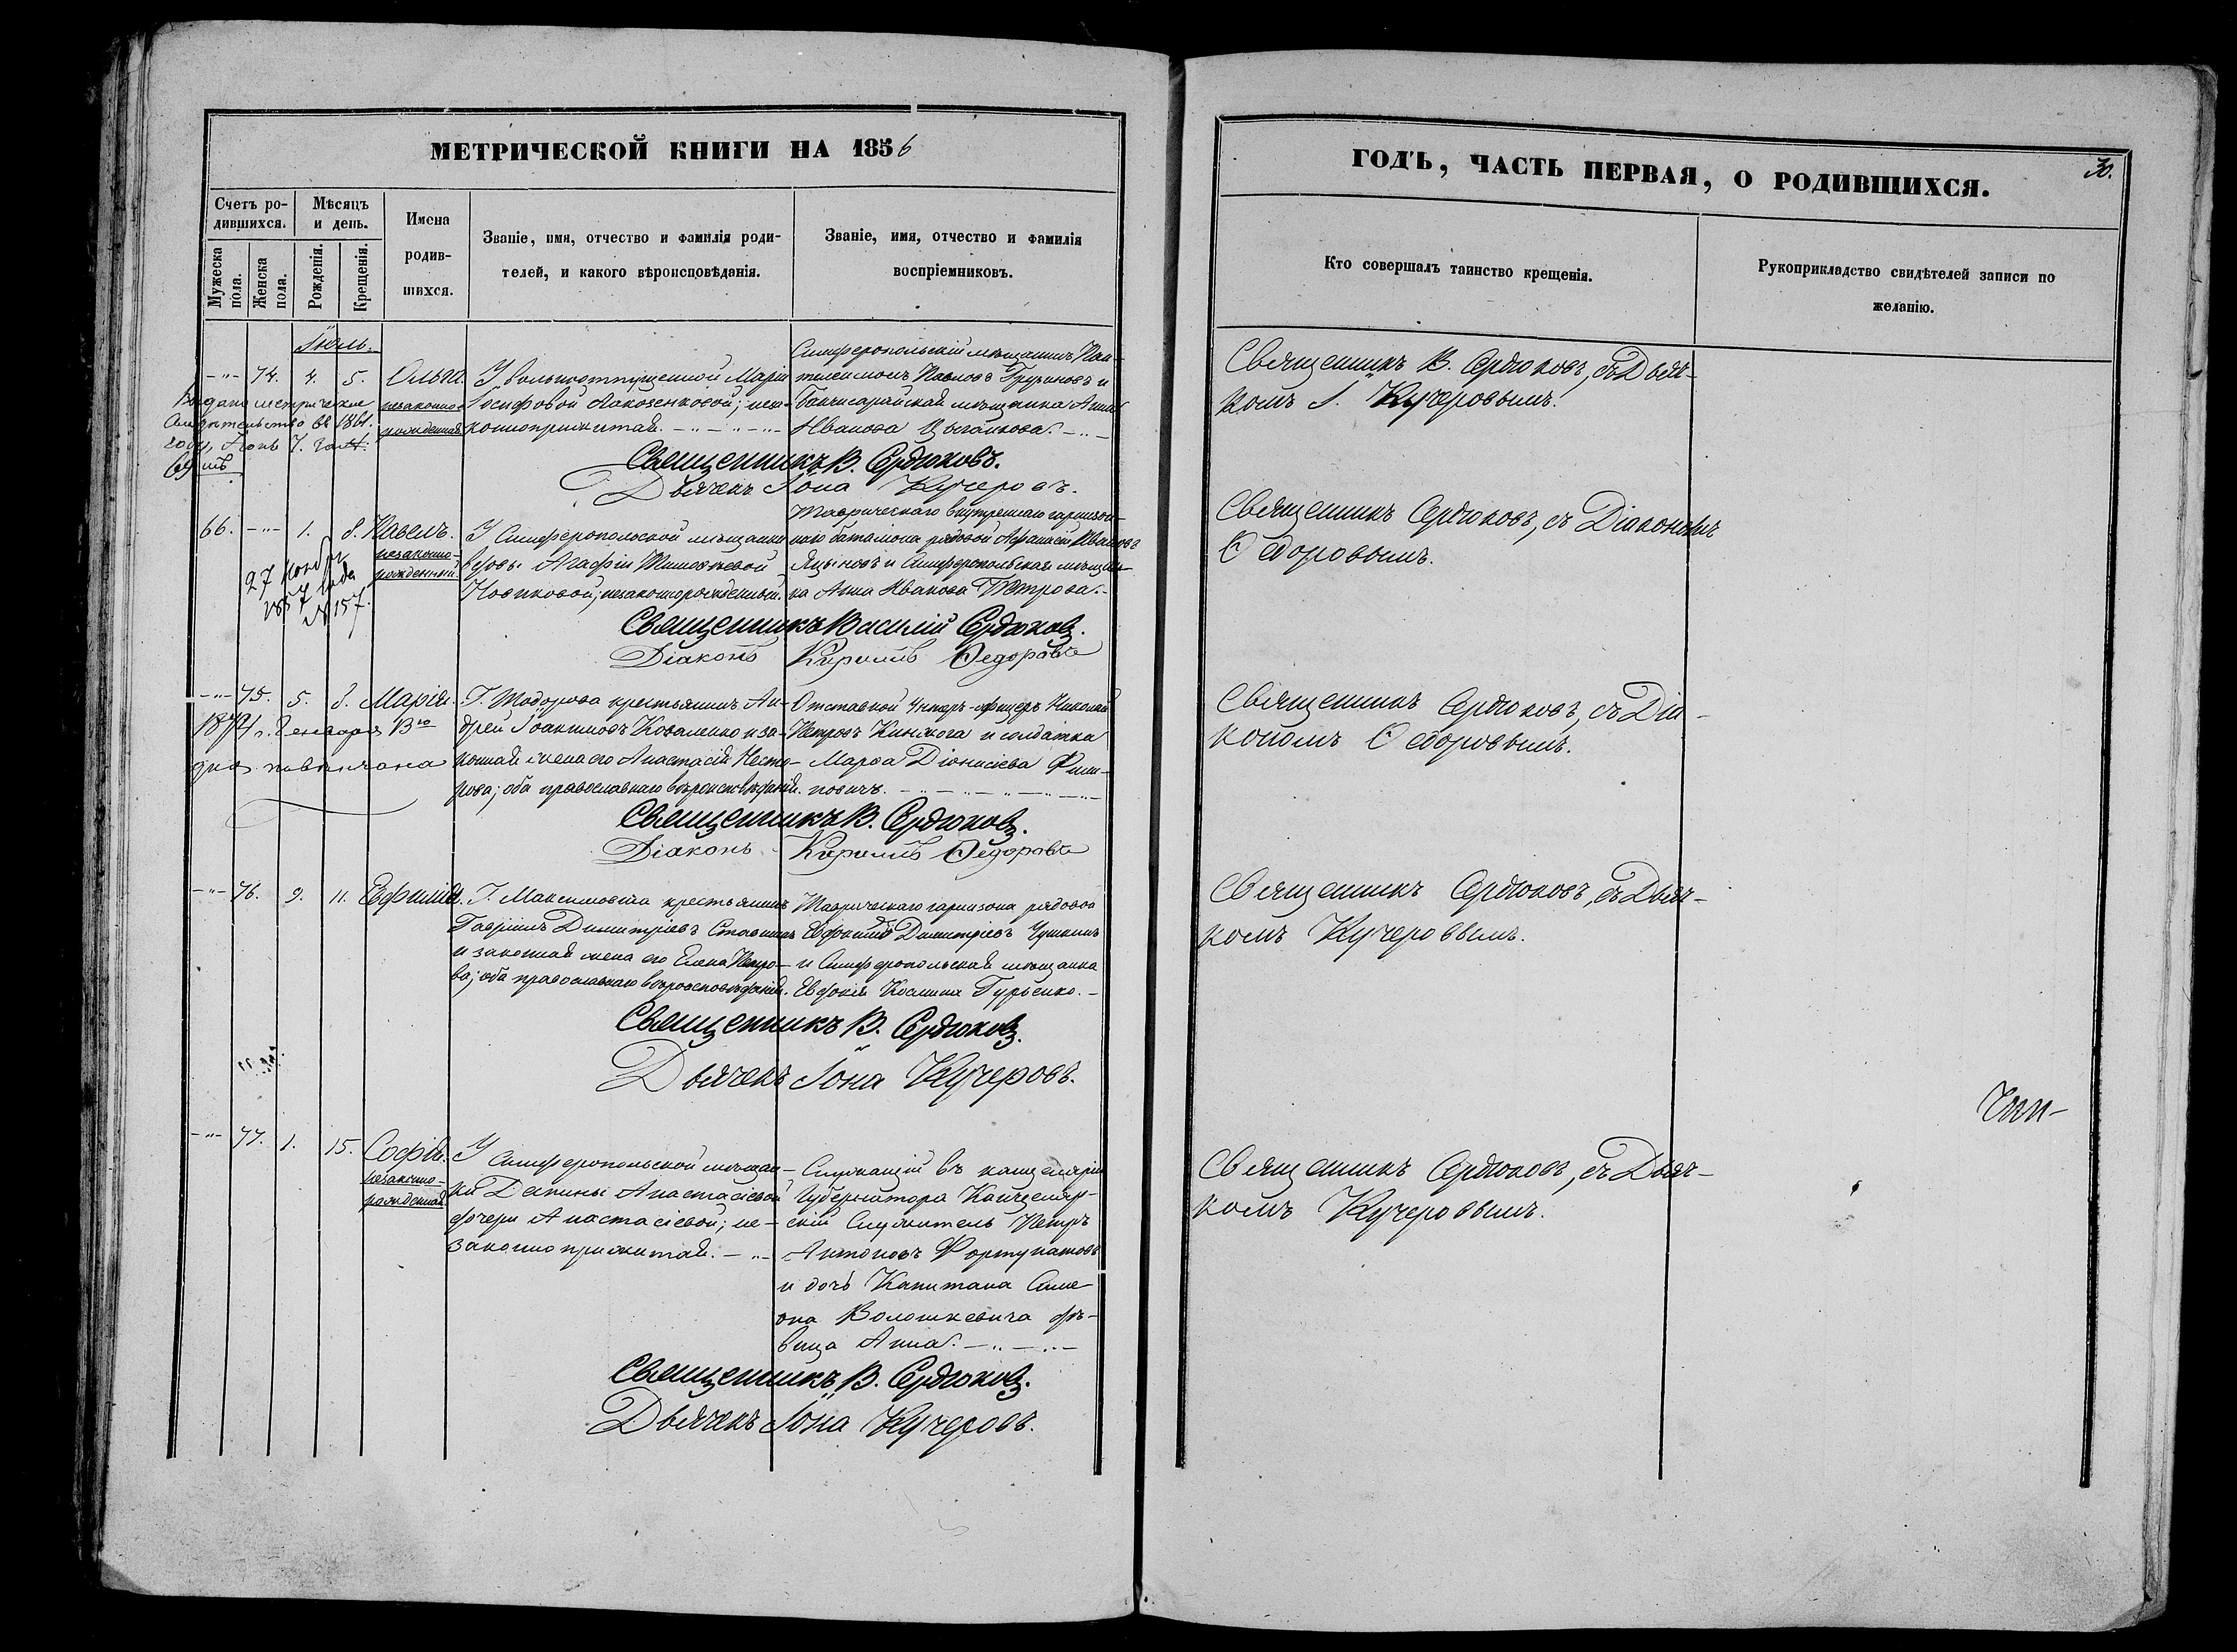 МЕТРИЧЕСКОЙ КНИГИ НА 1856
Счетъ ро-
дившихся.
Мѣсяцъ
и день.
Мужеска
пола.
Женска
пола.
Рожденія.
Крещенія.
Имена
родив-
шихся.
Званіе, имя, отчество и фамилія роди-
телей, и какого вѣроисповѣданія.
Званіе, имя, отчество и фамилія
воспріемниковъ.
Іюль.
-"- 74. 4. 5. Ольга.
незаконно-
рожденная
Выдано метрическое
Свидѣтельство въ 1861.
году, Іюнь 7.
У вольноотпущенной Маріи
Іосифовой Лакозенковой; неза-
конноприжитая. - " - " -
Симферопольскій мѣщанинъ Пан-
телеимонъ Павловъ Грузиновъ и
бахчисарайская мѣщанка Анна
Иванова Цыганкова. - " -
Священникъ В. Сердюковъ.
Дьячекъ Іона Кучеровъ.
66. -"- 1. 8. Павелъ.
незаконно-
рожденный
27 Ноября
1857 года
№ 157.
У Симферопольской мѣщанки
вдовы Агафіи Тимоѳеевой
Новиковой; незаконнорожденный.
Таврическаго внутренняго гарнизон-
наго баталіона рядовой Афанасій Ивановъ
Яцыновъ и Симферопольская мѣщан-
ка Анна Иванова Петрова. -
Священникъ Василій Сердюковъ.
Діаконъ Кириллъ Ѳедоровъ
-"- 75. 5. 8. Марія.
1874 г. Генваря 13го
дня повѣнчана
Г. Тодорова крестьянинъ Ан-
дрей Іоакимовъ Коваленко и за-
конная жена его Анастасія Несте-
рова; оба православнаго вѣроисповѣданія.
Отставной Унтеръ-офицеръ Николай
Петровъ Кинжога и солдатка
Марѳа Діонисіева Фили-
повичъ. - " - " - " -
Священникъ В. Сердюковъ.
Діаконъ Кириллъ Ѳедоровъ
-"- 76. 9. 11. Евфимія.
Г. Максимовича крестьянинъ
Гавріилъ Димитріевъ Ставицкъ
и законная жена его Елена Петро-
ва; оба православнаго вѣроисповѣданія.
Таврическаго гарнизона рядовой
Димитріевъ Чушкинъ
и Симферопольская мѣщанка
Евдокія Космина Гурьенко. -
Священникъ В. Сердюковъ.
Дьячекъ Іона Кучеровъ.
-"- 77. 1. 15. Софія.
незаконно-
рожденная
У Симферопольской мѣщан-
ки Деспины Анастасіевой
дочери Анастасіевой; не-
законно прижитая. - " -
Служащій въ канцеляріи
Губернатора Канцеляр-
скій Служитель Петръ
Антоновъ Фортунатовъ
и дочь Капитана Симе-
она Волошкевича дѣ-
вица Анна. - " - " -
Священникъ В. Сердюковъ.
Дьячекъ Іона Кучеровъ.
ГОДЪ, ЧАСТЬ ПЕРВАЯ, О РОДИВШИХСЯ.
30.
Кто совершалъ таинство крещенія.
Рукоприкладство свидѣтелей записи по
желанію.
Священникъ В. Сердюковъ, съ Дьяч-
комъ І. Кучеровымъ.
Священникъ Сердюковъ, съ Діакономъ
Ѳедоровымъ.
Священникъ Сердюковъ, съ Діа-
кономъ Ѳедоровымъ.
Священникъ Сердюковъ, съ Дьяч-
комъ Кучеровымъ.
Священникъ Сердюковъ, съ Дьяч-
комъ Кучеровымъ.